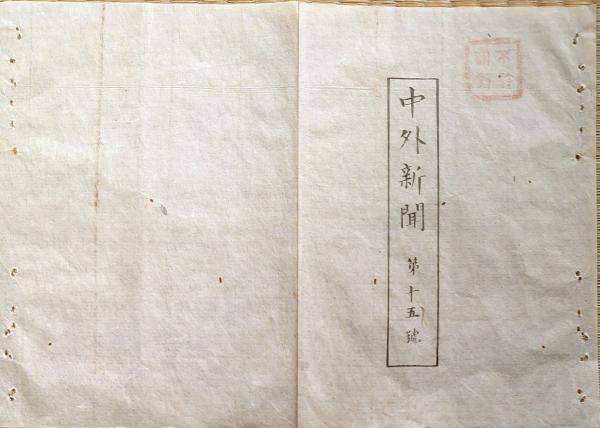 中外新聞 第十五號